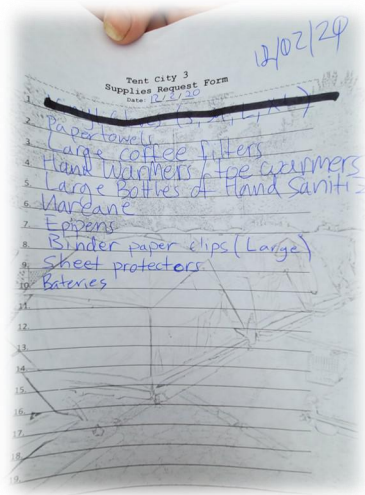 12/02/20
Tent City 3
Supplies Request Form
Date: 12/2/20
1.
2. Paper towels
3. Large coffee filters
4. Hand warmers/toe warmers
5. Large Bottles of Hand Saniti
6. Narcane
7. Epipens
8. Binder paper clips (Large)
9. Sheet protectors
10. Bateries
11.
12.
13.
14.
15.
16.
17.
18.
19.